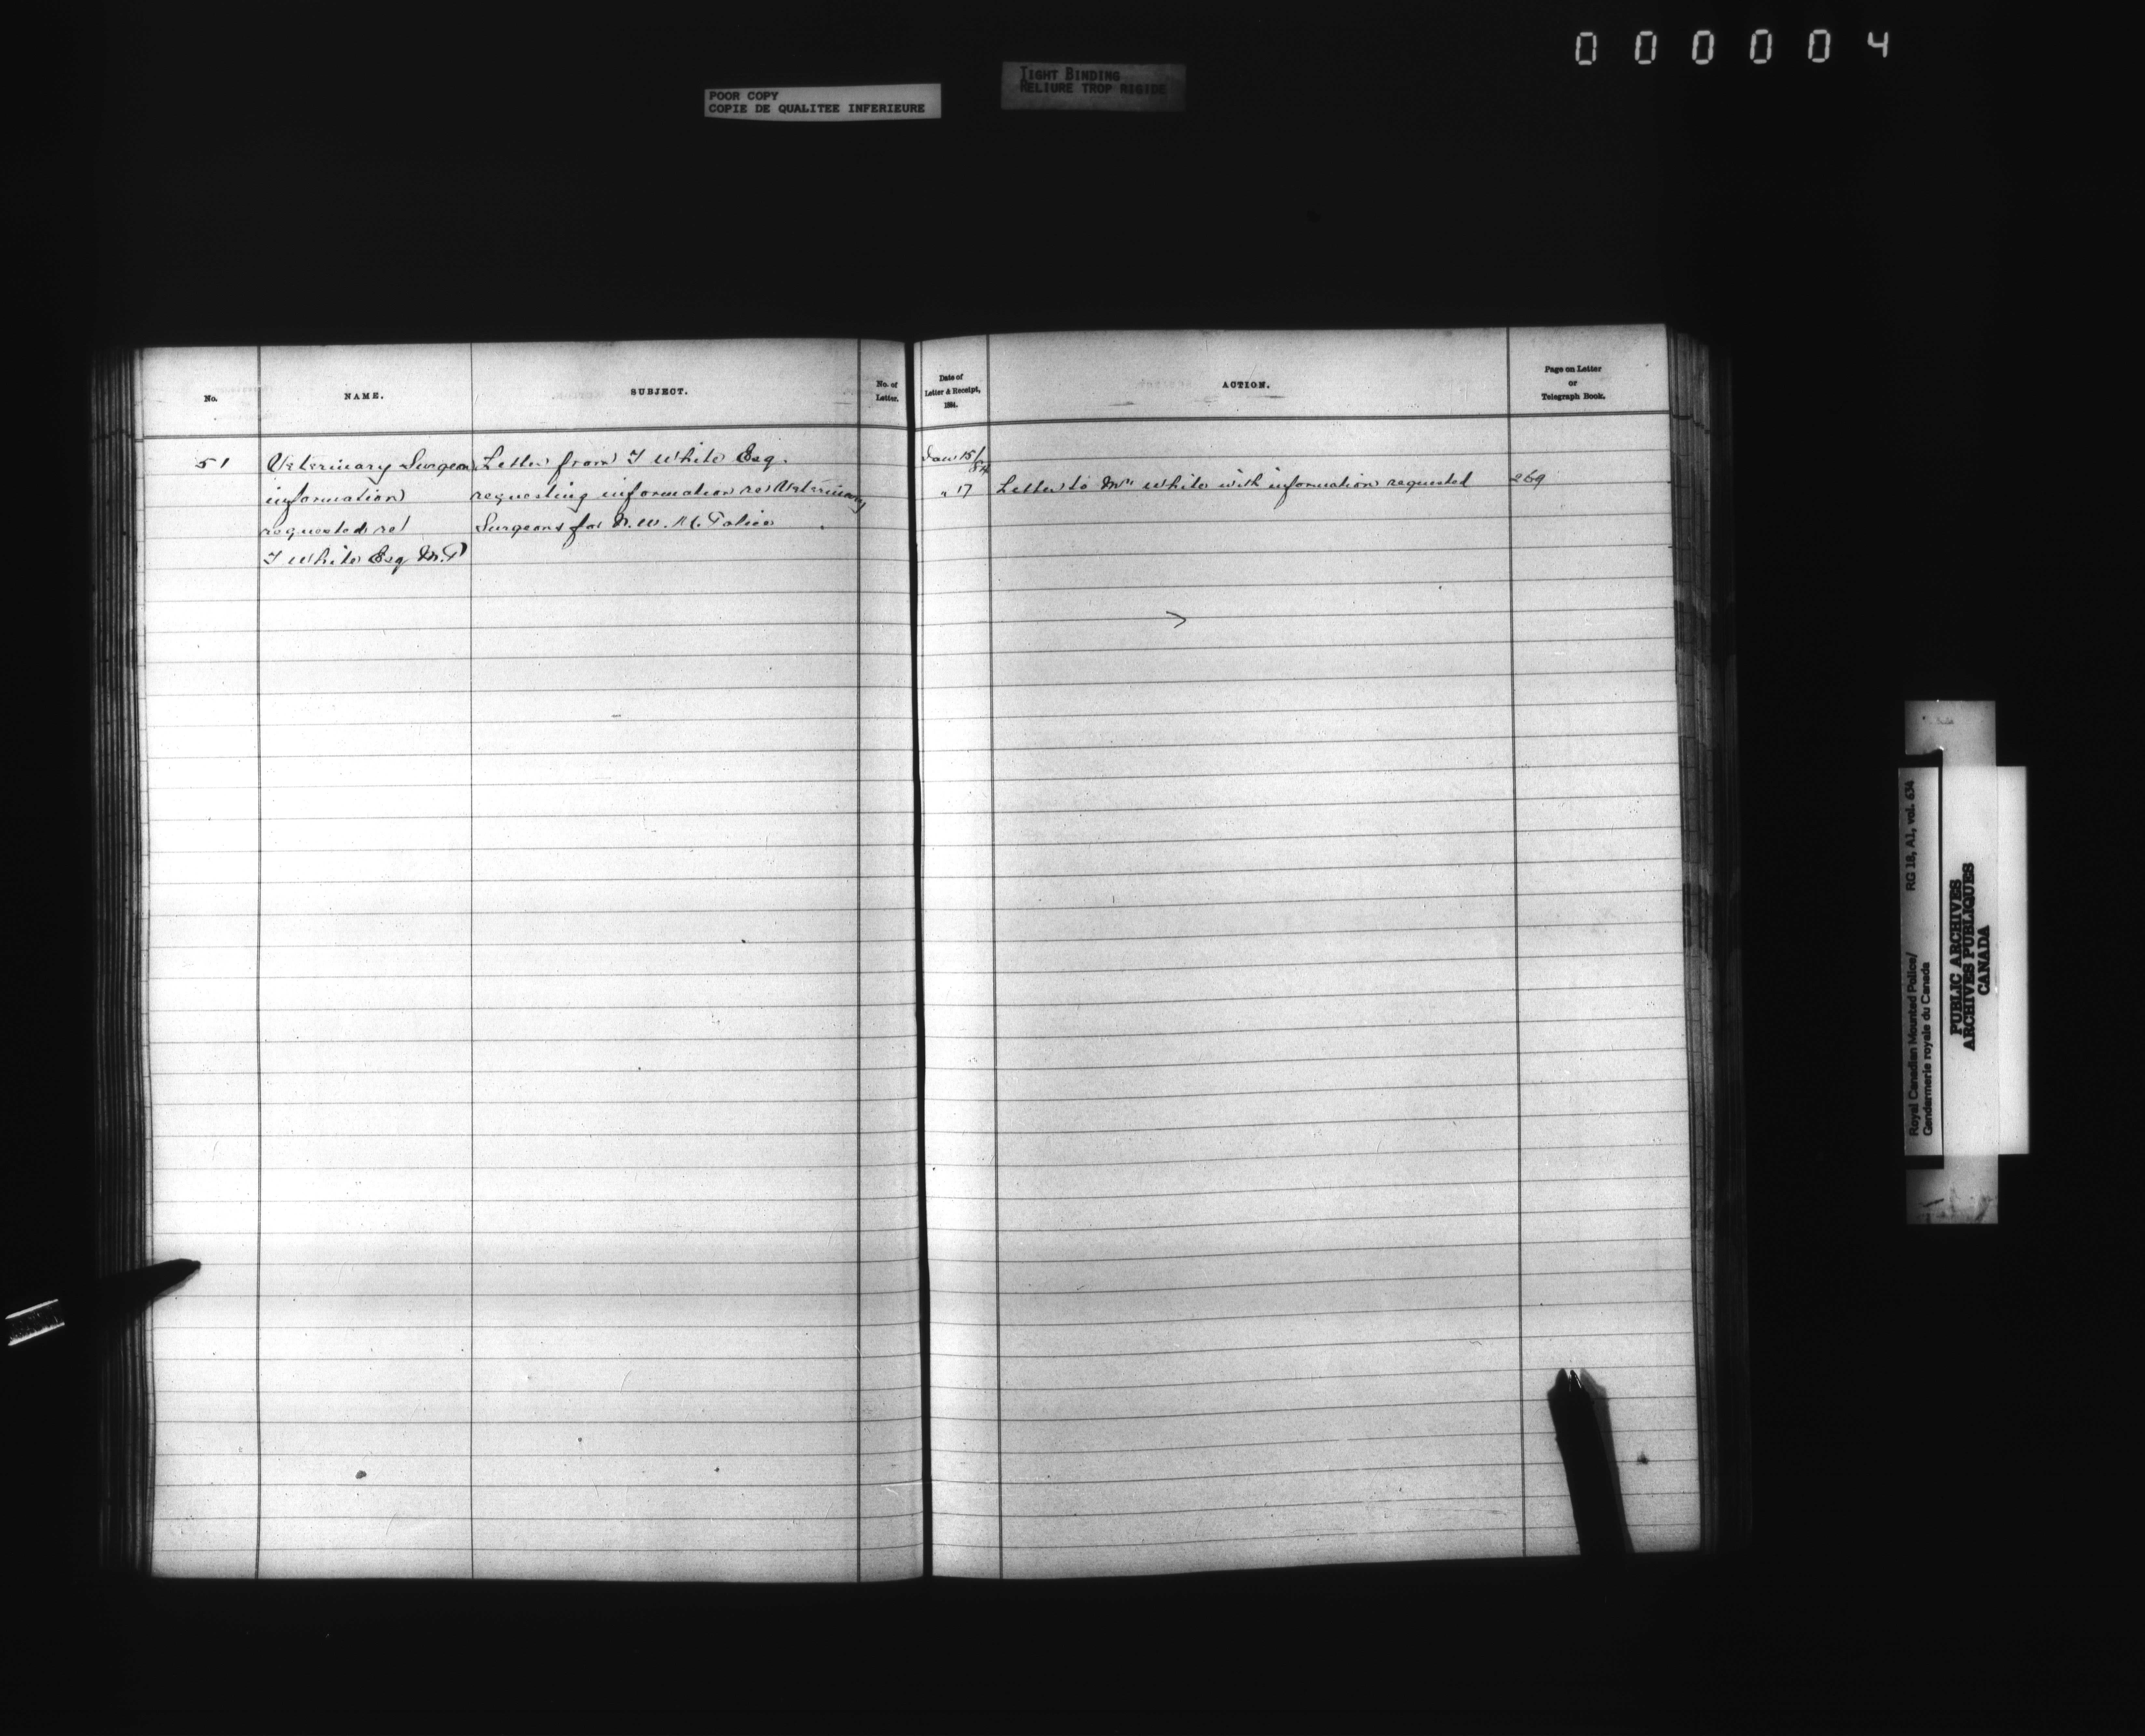 000004
POOR COPY
COPIE DE QUALITEE INFERIEURE
TIGHT BINDING
RELIURE TROP RIGIDE
No.
NAME.
SUBJECT.
No. of
Letter.
Date of
Letter & Receipt,
188 .
ACTION.
Page on Letter
or
Telegraph Book.
51
Veterinary Surgeon
information
requested re
T White Esq M.P
Letter from T White Esq.
requesting information re Veterinary
Surgeons for N. W. M. Police
Jan 15/
84
" 17
Letter to Mr White with information requested
269
Royal Canadian Mounted Police/
Gendarmerie royale du Canada
RG 18, A1, vol. 634
PUBLIC ARCHIVES
ARCHIVES PUBLIQUES
CANADA